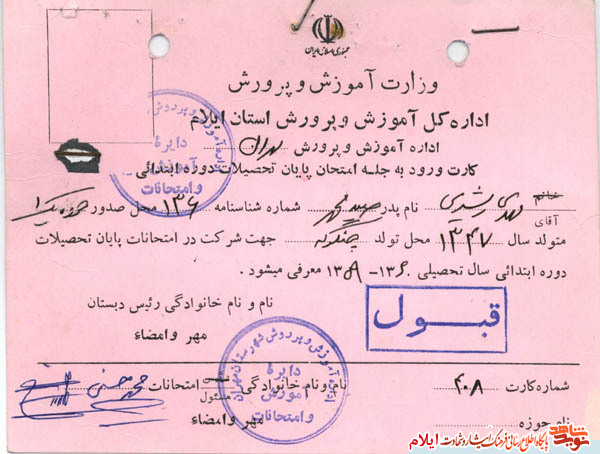 جمهوری اسلامی ایران
وزارت آموزش و پرورش
اداره کل آموزش و پرورش استان ایلام
اداره آموزش و پرورش مهران
کارت ورود به جلسه امتحان پایان تحصیلات دوره ابتدائی
خانم
آقای مهدی رشیدی نام پدر شماره شناسنامه ۱۳۶ محل صدور حوزه یک
متولد سال ۱۳۴۷ محل تولد جهت شرکت در امتحانات پایان تحصیلات
دوره ابتدائی سال تحصیلی ۱۳۶۰-۱۳۵۹ معرفی میشود.
نام و نام خانوادگی رئیس دبستان
مهر و امضاء
قبول
شماره کارت ۴۰۸
نام و نام خانوادگی مسئول امتحانات
نام حوزه
مهر و امضاء
دایره
آموزش
و امتحانات
اداره آموزش و پرورش شهرستان مهران
دایره
آموزش
و امتحانات
نوید شاهد
پایگاه اطلاع رسانی فرهنگ ایثار و شهادت ایلام